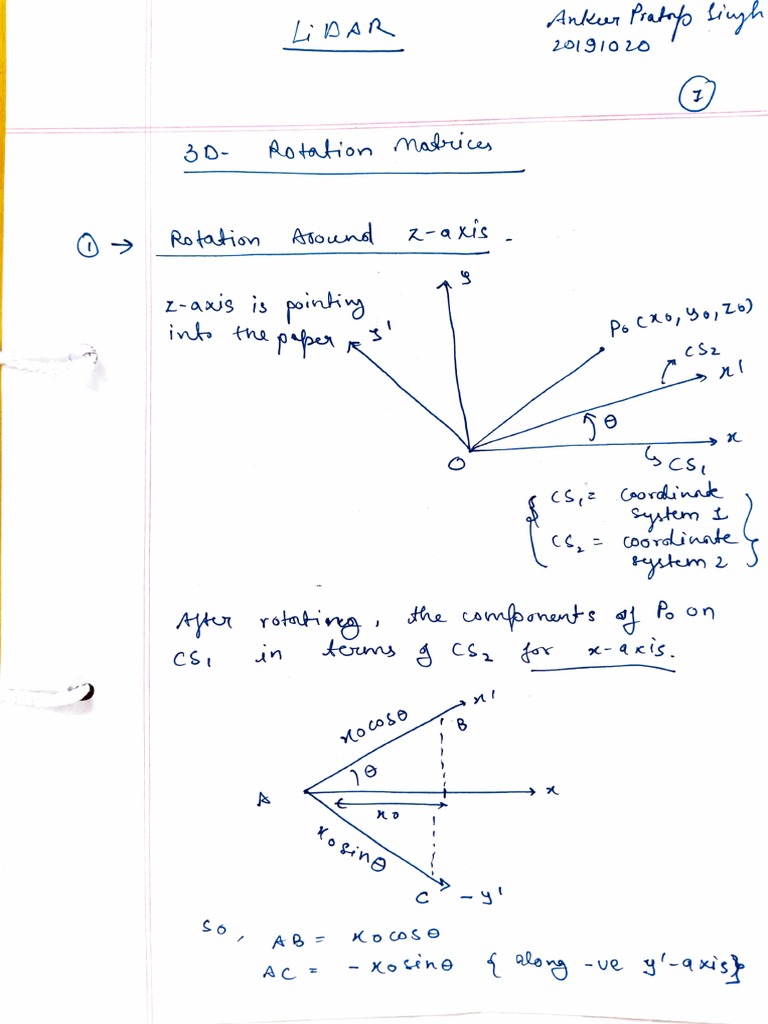 LiDAR
Ankur Pratap Singh
20191020
1
3D- Rotation Matrices
① → Rotation Around z-axis.
z-axis is pointing
into the paper
y
y'
P0 (x0, y0, z0)
CS2
x'
θ
x
O
CS1
{ CS1 = coordinate
system 1
CS2 = coordinate
system 2 }
After rotating, the components of P0 on
CS1 in terms of CS2 for x-axis.
x'
x0cosθ
B
θ
A
x
x0
x0sinθ
C
-y'
So, AB = x0cosθ
AC = -x0sinθ { along -ve y'-axis}